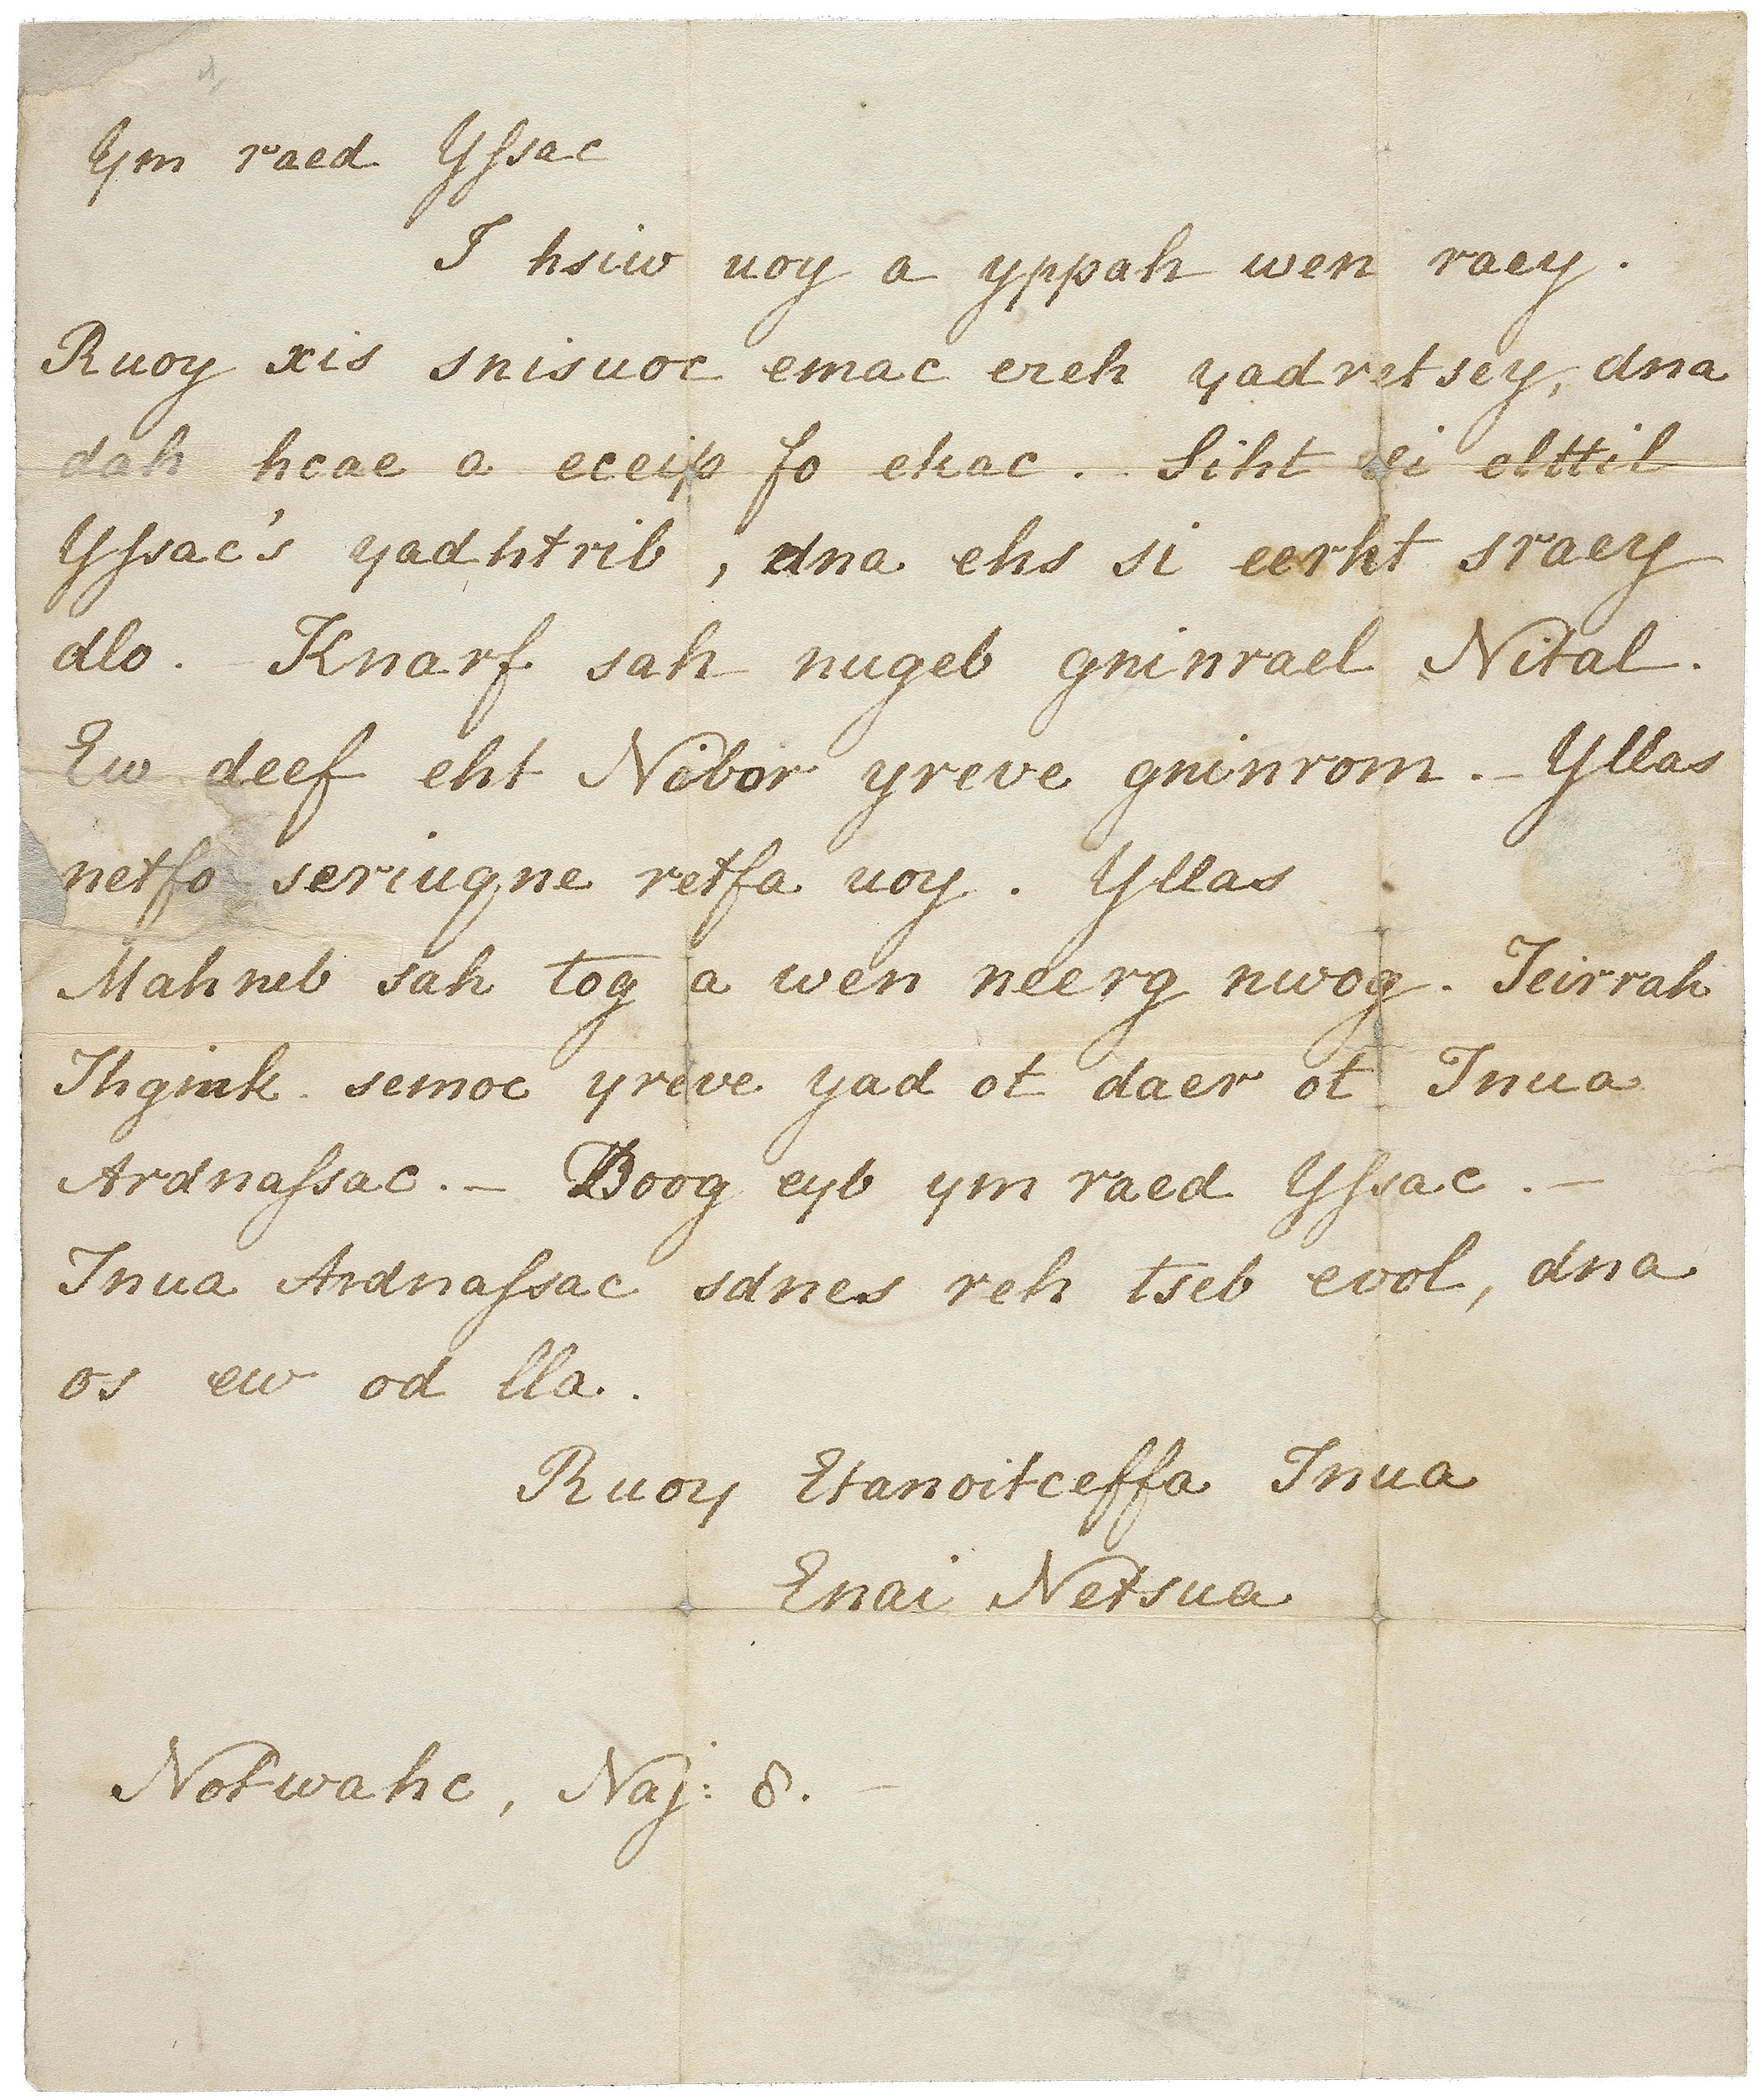 Ym raed Yſsac
I hsiw uoy a yppah wen raey.
Ruoy xis snisuoc emac ereh yadretsey, dna
dah hcae a eceip fo ekac. Siht si elttil
Yſsac's yadhtrib, dna ehs si eerht sraey
dlo. Knarf sah nugeb gninrael Nital.
Ew deef eht Nibor yreve gninrom. — Yllas
netfo seriuqne retfa uoy. Yllas
Mahneb sah tog a wen neerg nwog. Teirrah
Thgink semoc yreve yad ot daer ot Tnua
Ardnaſsac. — Doog eyb ym raed Yſsac. —
Tnua Ardnaſsac sdnes reh tseb evol, dna
os ew od lla.
Ruoy Etanoitceffa Tnua
Enai Netsua
Notwahc, Naj: 8. —